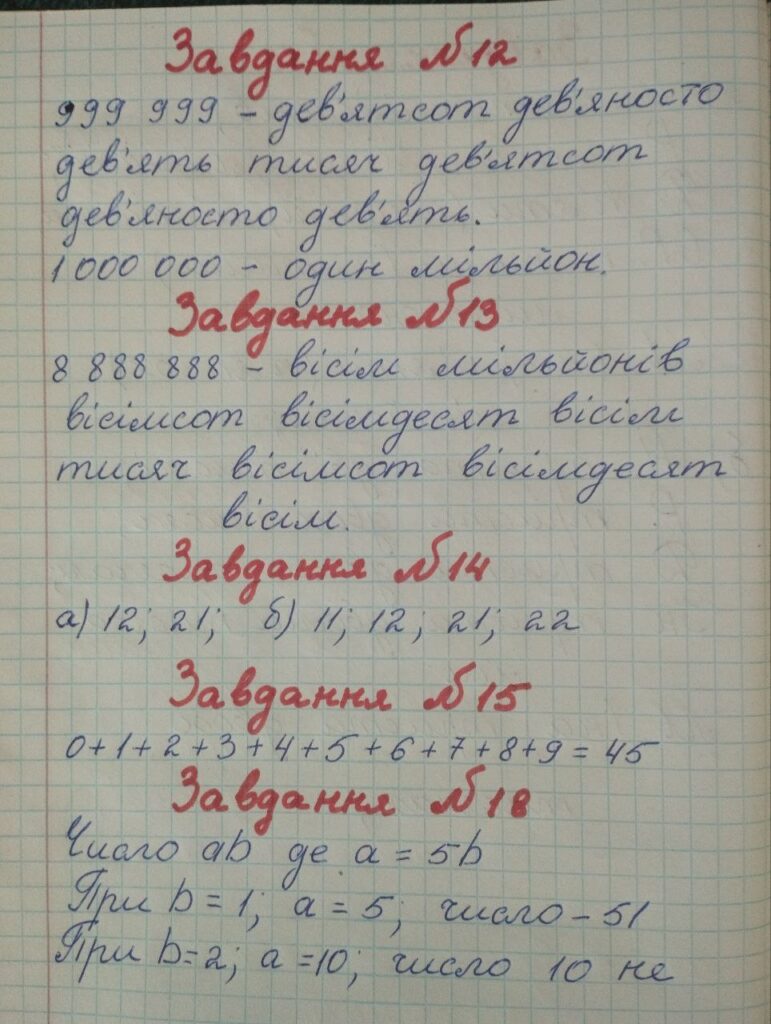 Завдання №12
999 999 – дев'ятсот дев'яносто
дев'ять тисяч дев'ятсот
дев'яносто дев'ять.
1 000 000 – один мільйон.
Завдання №13
8 888 888 – вісім мільйонів
вісімсот вісімдесят вісім
тисяч вісімсот вісімдесят
вісім.
Завдання №14
а) 12; 21; б) 11; 12; 21; 22
Завдання №15
0+1+2+3+4+5+6+7+8+9=45
Завдання №18
Число ab де a = 5b
При b = 1; a = 5; число – 51
При b=2; a =10; число 10 не